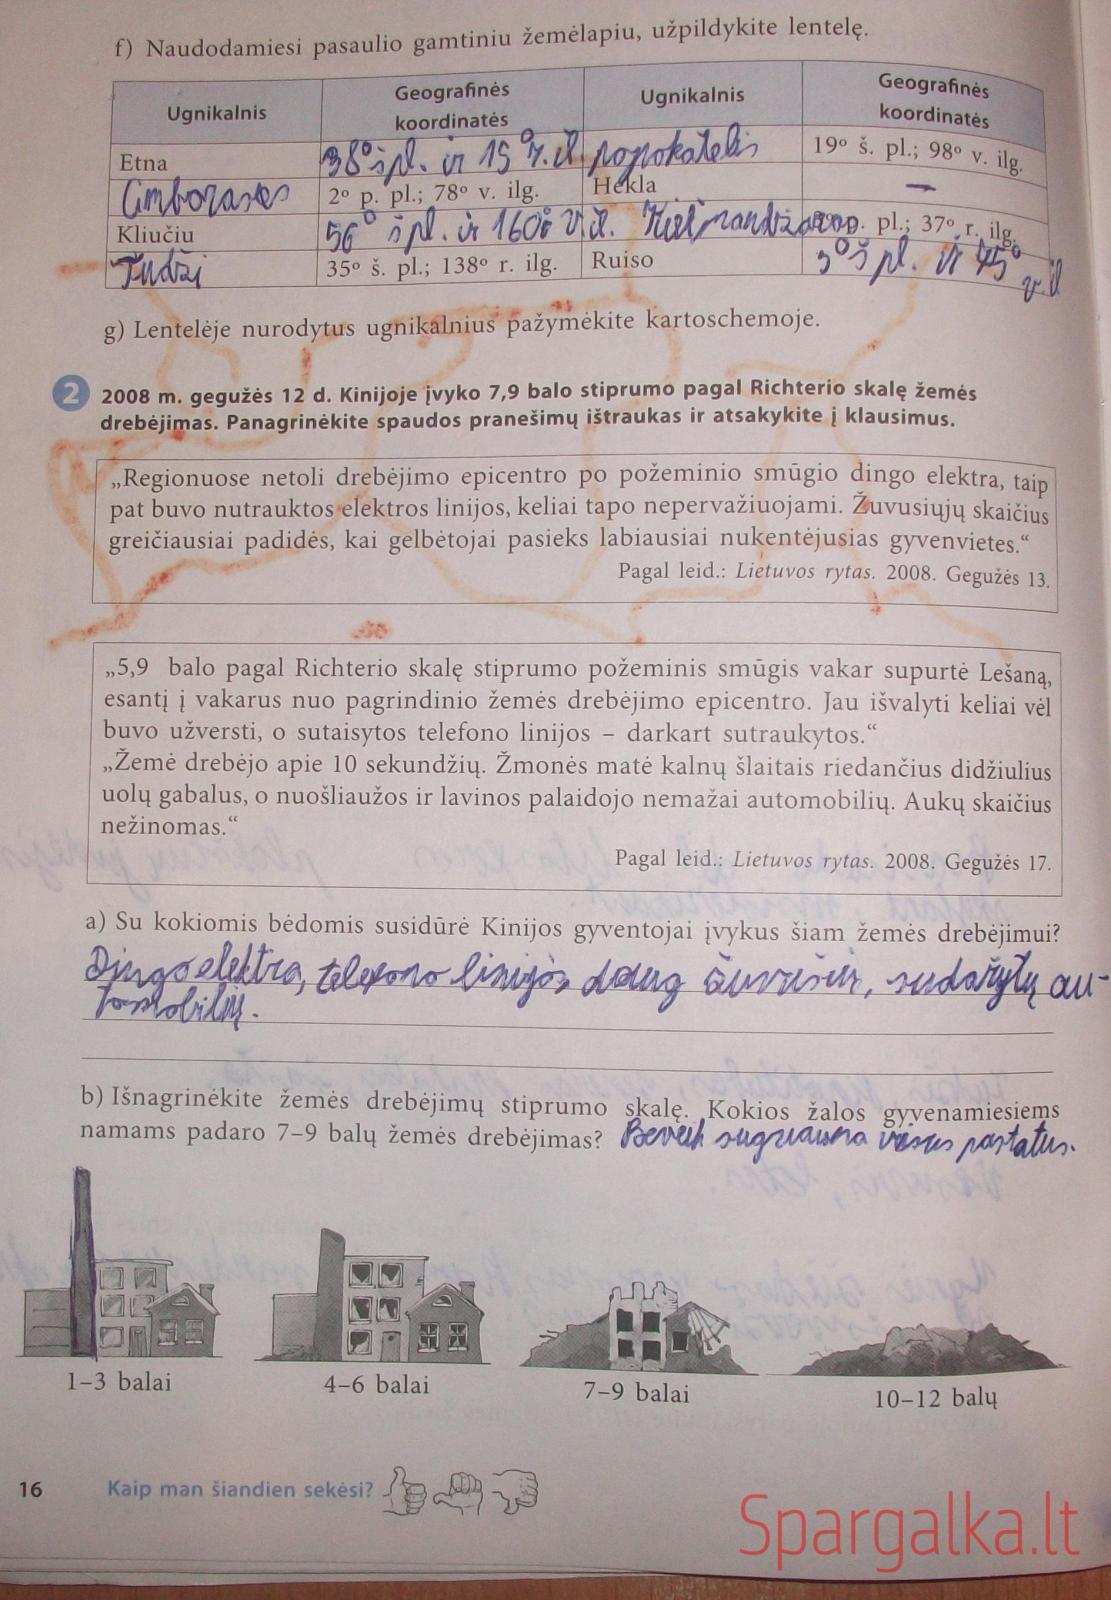 f) Naudodamiesi pasaulio gamtiniu žemėlapiu, užpildykite lentelę.
Ugnikalnis Geografinės koordinatės Ugnikalnis Geografinės koordinatės
Etna 38° š pl. ir 15° r. il. popokatelis 19° š. pl.; 98° v. ilg.
2° p. pl.; 78° v. ilg. Hekla —
Kliučiu 56° š pl. ir 160° v. il. p. pl.; 37° r. ilg.
Fudži 35° š. pl.; 138° r. ilg. Ruiso 5° š pl. ir 75° v. il
g) Lentelėje nurodytus ugnikalnius pažymėkite kartoschemoje.
2 2008 m. gegužės 12 d. Kinijoje įvyko 7,9 balo stiprumo pagal Richterio skalę žemės
drebėjimas. Panagrinėkite spaudos pranešimų ištraukas ir atsakykite į klausimus.
„Regionuose netoli drebėjimo epicentro po požeminio smūgio dingo elektra, taip
pat buvo nutrauktos elektros linijos, keliai tapo nepervažiuojami. Žuvusiųjų skaičius
greičiausiai padidės, kai gelbėtojai pasieks labiausiai nukentėjusias gyvenvietes.“
Pagal leid.: Lietuvos rytas. 2008. Gegužės 13.
„5,9 balo pagal Richterio skalę stiprumo požeminis smūgis vakar supurtė Lešaną,
esantį į vakarus nuo pagrindinio žemės drebėjimo epicentro. Jau išvalyti keliai vėl
buvo užversti, o sutaisytos telefono linijos – darkart sutraukytos.“
„Žemė drebėjo apie 10 sekundžių. Žmonės matė kalnų šlaitais riedančius didžiulius
uolų gabalus, o nuošliaužos ir lavinos palaidojo nemažai automobilių. Aukų skaičius
nežinomas.“
Pagal leid.: Lietuvos rytas. 2008. Gegužės 17.
a) Su kokiomis bėdomis susidūrė Kinijos gyventojai įvykus šiam žemės drebėjimui?
Dingo elektra, telefono linijos, daug žuvusių, sudaužytų au-
tomobilių.
b) Išnagrinėkite žemės drebėjimų stiprumo skalę. Kokios žalos gyvenamiesiems
namams padaro 7–9 balų žemės drebėjimas? Beveik sugriauna visus pastatus.
1–3 balai 4–6 balai 7–9 balai 10–12 balų
16 Kaip man šiandien sekėsi?
Spargalka.lt